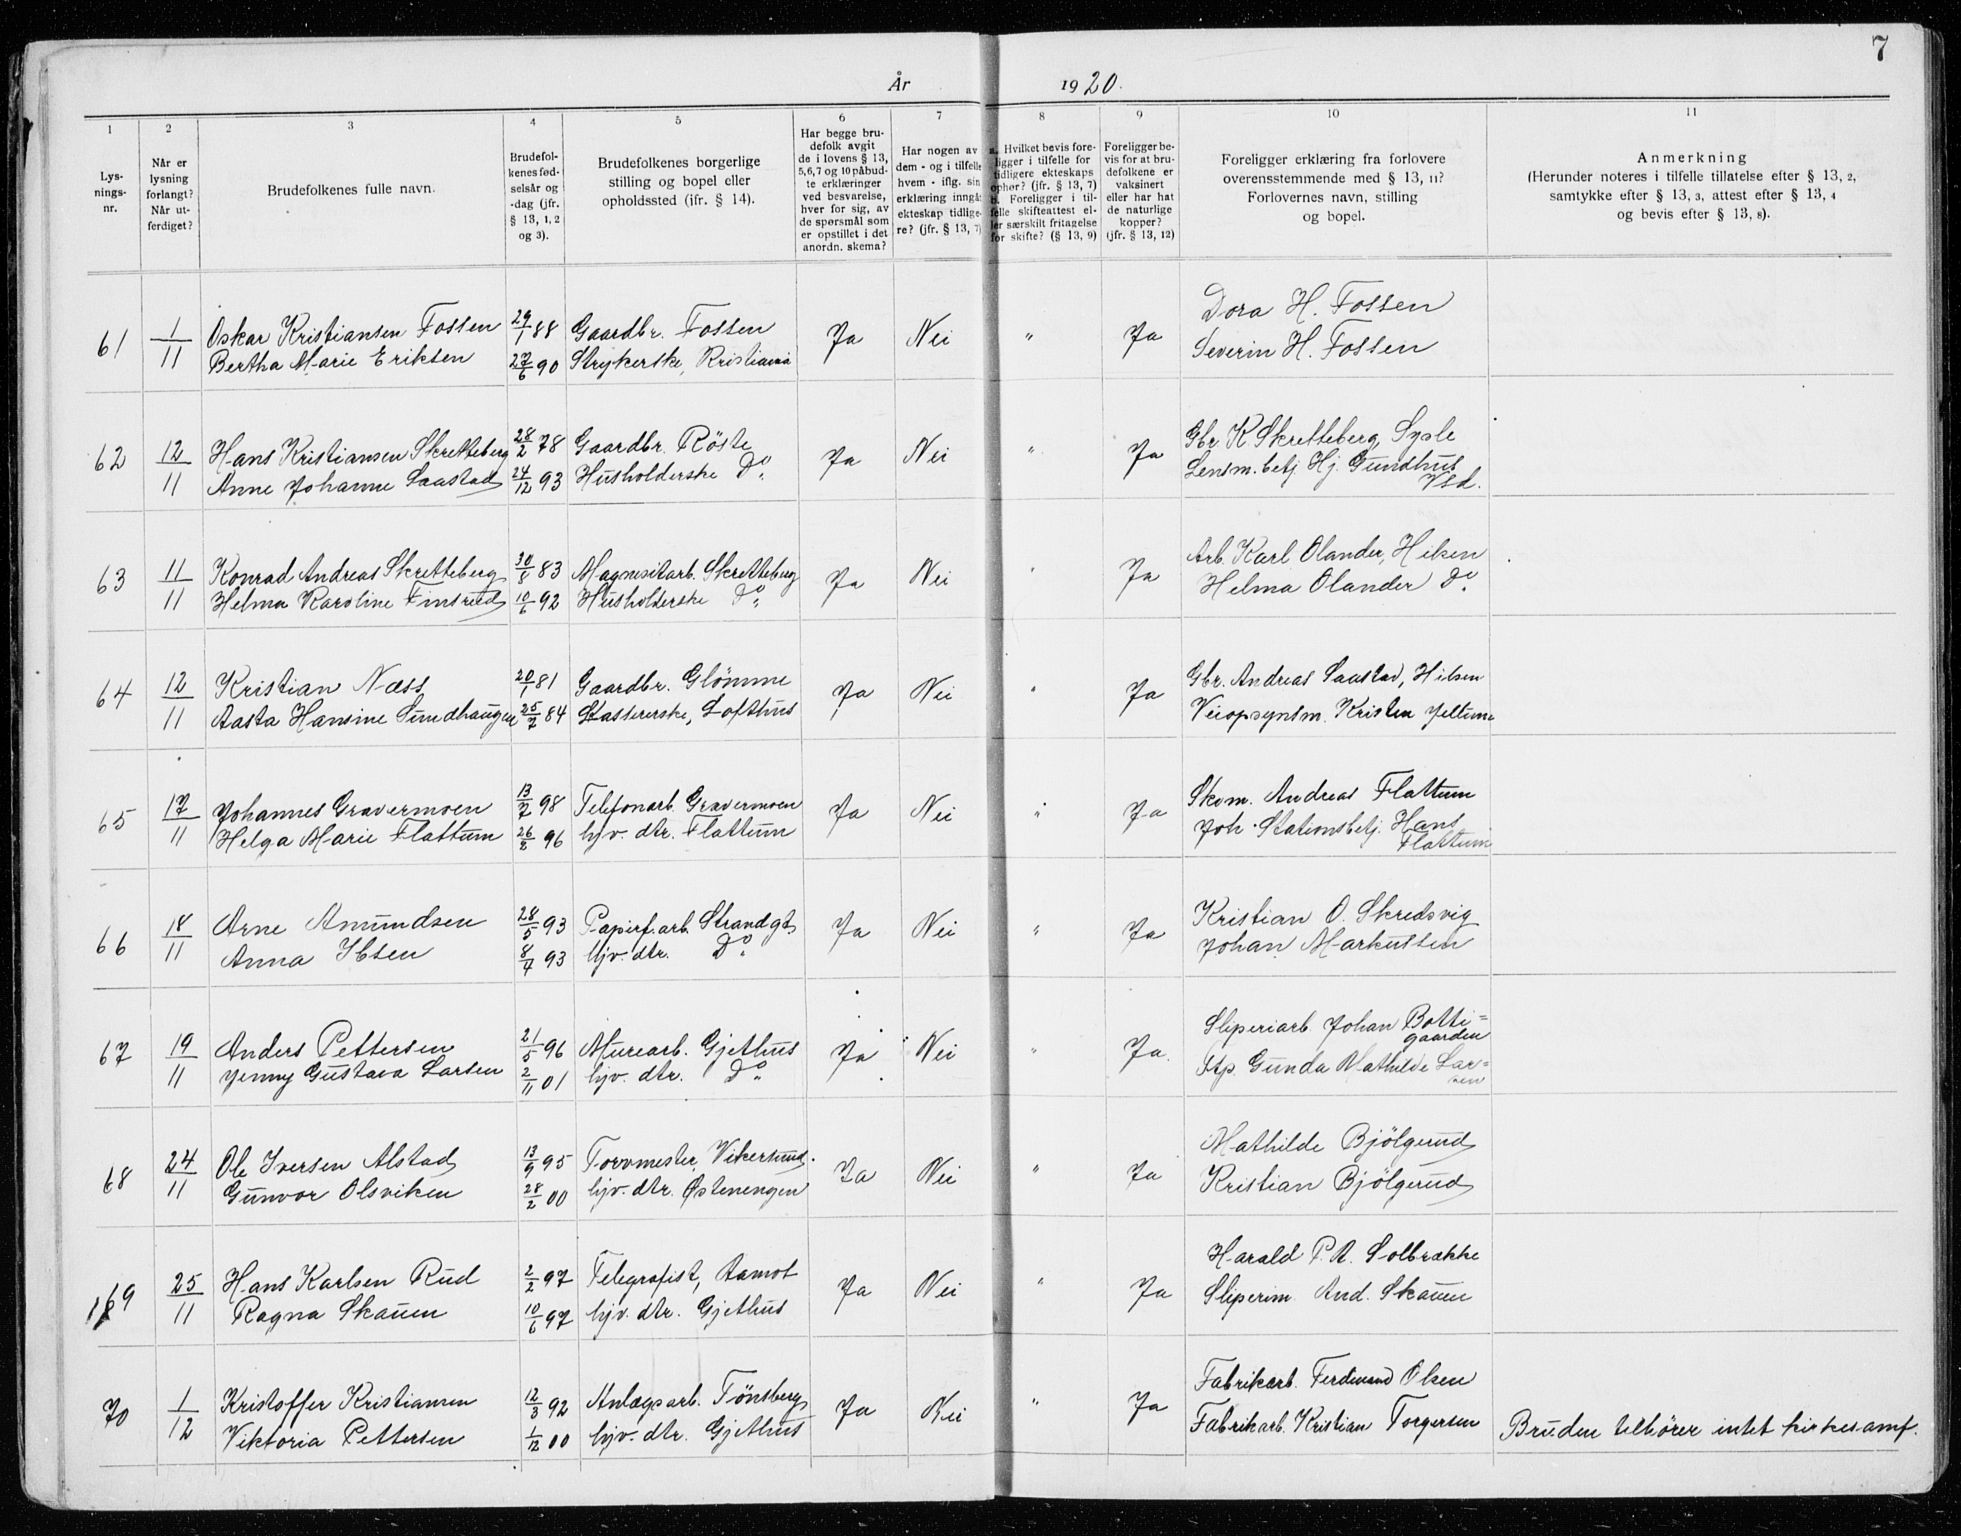 7
År 1920.
1 2 3 4 5 6 7 8 9 10 11
Lys-
nings-
nr.
Når er
lysning
forlangt?
Når ut-
ferdiget?
Brudefolkenes fulle navn.
Brudefol-
kenes fød-
selsår og
-dag (jfr.
§ 13, 1, 2
og 3).
Brudefolkenes borgerlige
stilling og bopel eller
opholdssted (ifr. § 14).
Har begge bru-
defolk avgit
de i lovens § 13,
5,6,7 og 10 påbud-
te erklæringer
ved besvarelse,
hver for sig, av
de spørsmål som
er opstillet i det
anordn. skema?
Har nogen av
dem - og i tilfelle
hvem - iflg. sin
erklæring inngåt
ekteskap tidlige-
re? (jfr. § 13, 7)
a. Hvilket bevis fore-
ligger i tilfelle for
tidligere ekteskaps
ophør? (jfr. § 13, 7)
b. Foreligger i til-
felle skifteattest el-
ler særskilt fritagelse
for skifte? (§ 13, 9)
Foreligger be-
vis for at bru-
defolkene er
vaksinert
eller har hat
de naturlige
kopper?
(jfr. § 13, 12)
Foreligger erklæring fra forlovere
overensstemmende med § 13, 11?
Forlovernes navn, stilling
og bopel.
Anmerkning
(Herunder noteres i tilfelle tillatelse efter § 13, 2,
samtykke efter § 13, 3, attest efter § 13, 4
og bevis efter § 13, 8).
61 1/11 Oskar Kristiansen Fossen 29/1 88 Gaardbr. Fossen Ja Nei " Ja Dora H. Fossen
Bertha Marie Eriksen 27/6 90 Strykerske, Kristiania Severin H. Fossen
62 12/11 Hans Kristiansen Skretteberg 28/2 78 Gaardbr. Röste Ja Nei " Ja Gbr K. Skretteberg, Sysle
Anne Johanne Saastad 24/12 93 Husholderske Do. Lensm. betj. Hj. Gundhus
Vsd.
63 11/11 Konrad Andreas Skretteberg 30/8 83 Magnesitarb. Skretteberg Ja Nei " Ja Arb. Karl Olander, Hilsen
Helma Karoline Finsrud 10/6 92 Husholderske Do. Helma Olander Do.
64 12/11 Kristian Næss 20/1 81 Gaardbr. Glömme Ja Nei " Ja Gbr. Andreas Saastad, Hilsen
Aasta Hansine Sundhaugen 25/2 84 Kassererske, Lofthus Veiopsynsm. Kristen Jeltune
65 17/11 Johannes Gravermoen 13/7 98 Telefonarb. Gravermoen Ja Nei " Ja Skom. Andreas Flattum
Helga Marie Flattum 26/2 96 hjv. dtr. Flattum Joh. Stationsbetj. Hans
Flattum
66 18/11 Arne Amundsen 28/5 93 Papirf. arb. Strandgt. Ja Nei " Ja Kristian O. Skredsvig
Anna Ibsen 8/7 93 hjv. dtr. Do. Johan Markussen
67 19/11 Anders Pettersen 21/5 96 Murearb. Gjethus Ja Nei " Ja. Sliperiarb. Johan Botti=
gaarden
Jenny Gustava Larsen 2/11 01 hjv. dtr. Do. Frp. Gunda Mathilde Lar=
sen
68 24/11 Ole Iversen Alstad 13/9 95 Torvmester, Vikersund. Ja Nei " Ja Mathilde Bjölgerud
Gunvor Olsviken 28/2 00 hjv. dtr. Østenengen Kristian Bjölgerud
69 25/11 Hans Karlsen Rud 2/2 97 Telegrafist, Aamot Ja Nei " Ja Harald P. A. Solbrække
Ragna Skauen 10/6 97 hjv. dtr. Gjethus Sliperim. And. Skauen
70 1/12 Kristoffer Kristiansen 12/3 92 Anlægsarb. Tönsberg Ja Nei " Ja Fabrikarb. Ferdinand Olsen
Viktoria Pettersen 1/12 00 hjv. dtr. Gjethus Fabrikarb. Kristian Torgersen Bruden tilhörer intet kirkesamf.